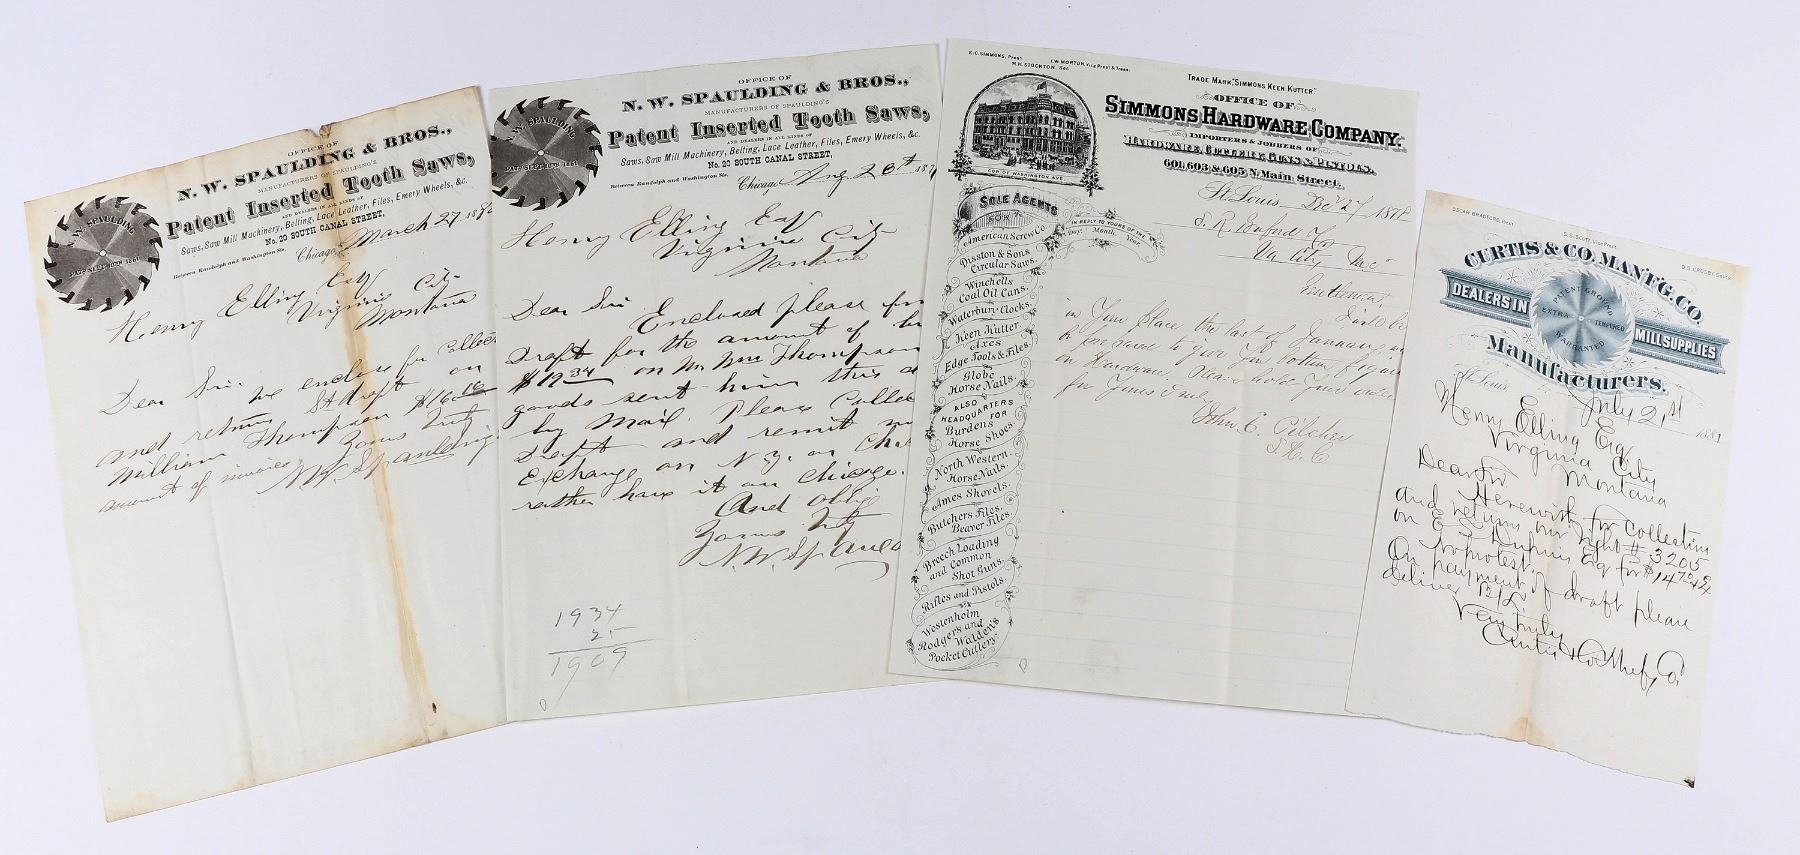 OFFICE OF
N. W. SPAULDING & BROS.,
MANUFACTURERS OF SPAULDING'S
Patent Inserted Tooth Saws,
AND DEALERS IN ALL KINDS OF
Saws, Saw Mill Machinery, Belting, Lace Leather, Files, Emery Wheels, &c.
No. 20 SOUTH CANAL STREET,
Between Randolph and Washington Sts.
N.W. SPAULDING
PAT. SEPT. 10TH 1861
Chicago, March 27 1880
Henry Elling Esq
Virginia City
Montana
Dear Sir.
We enclose for collect
and return St draft on
William Thompson $160
amount of invoice.
Yours Truly
N W Spaulding
OFFICE OF
N. W. SPAULDING & BROS.,
MANUFACTURERS OF SPAULDING'S
Patent Inserted Tooth Saws,
AND DEALERS IN ALL KINDS OF
Saws, Saw Mill Machinery, Belting, Lace Leather, Files, Emery Wheels, &c.
No. 20 SOUTH CANAL STREET,
Between Randolph and Washington Sts.
N.W. SPAULDING
PAT. SEPT. 10TH 1861
Chicago, Aug 28th 187
Henry Elling Esq
Virginia City
Montana
Dear Sir Enclosed please
Draft for the amount of
$19.34 on Mr Wm Thompson
goods sent him this
by mail. Please Collec
Draft and remit
Exchange on N.Y. or Chi
rather have it on Chicago.
And oblige
Yours Truly
N.W. Spauld
1934
25
1909
E. C. SIMMONS, Prest
I. W. MORTON, Vice Prest & Treas.
M. H. STOCKTON, Sec.
TRADE MARK "SIMMONS KEEN KUTTER."
OFFICE OF
SIMMONS HARDWARE COMPANY.
IMPORTERS & JOBBERS OF
HARDWARE, CUTLERY, GUNS & PISTOLS.
601, 603 & 605 N. Main Street.
COR OF WASHINGTON AVE.
St. Louis, Dec 27 1878
IN REPLY TO YOURS OF THE
Day. Month. Year.
SOLE AGENTS
FOR
American Screw Co.
Disston & Sons
Circular Saws.
Winchells
Coal Oil Cans.
Waterbury Clocks.
Keen Kutter
Axes
Edge Tools & Files.
Globe
Horse Nails.
ALSO
HEADQUARTERS
FOR
Burdens
Horse Shoes.
North Western
Horse Nails.
Ames Shovels.
Butchers Files.
Beaver Files.
Breech Loading
and Common
Shot Guns.
Rifles and Pistols.
Westenholm
Rodgers and
Walden's
Pocket Cutlery.
S. R. Buford & Co
Va City
Gentlemen,
in Your place the last of January
to give You bottom figur
on Hardware. Please hold Your order
for Yours Truly
John C. Pilcher
S.H.C
OSCAR BRADFORD, Prest.
S. S. SCOTT, Vice Prest.
D. S. CROSBY, Secr'y.
CURTIS & CO. MAN'F'G. CO.
DEALERS IN
MILL SUPPLIES
PATENT GROUND
EXTRA TEMPERED
WARRANTED
Manufacturers.
St. Louis July 21st 1881
Henry Elling Esq
Virginia City
Montana
Dear Sir
Herewith for collection
and return our sight # 3205
on E. Dufnis Esq for $
No protest. On payment of draft please
deliver B/L
Very truly
Curtis & Co Manfg Co